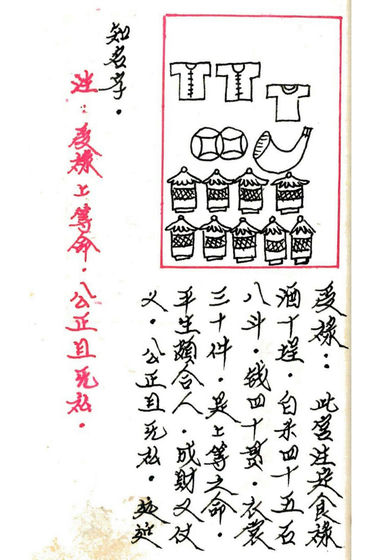 受禄：此宫注定食禄
酒十埕．白米四十五石
八斗．钱四十贯．衣裳
三十件．是上等之命．
平生頗合人．成財又仗
义．公正且无私．
知名字．
注：受禄上等命．公正且无私．